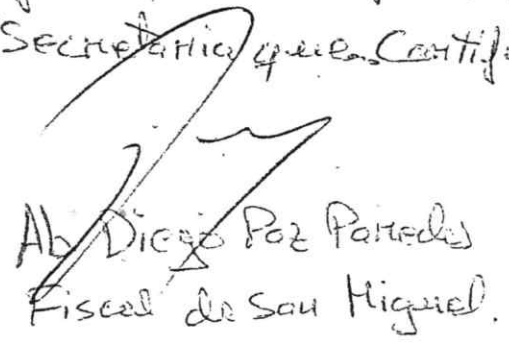 Secretaria que las Certif
Ab Diego Paz Paredes
Fiscal de San Miguel.